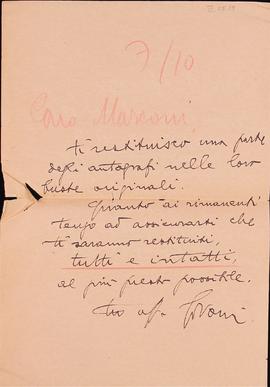 7/10
Caro Marconi,
ti restituisco una parte
degli autografi nelle loro
buste originali.
Quanto ai rimanenti
tengo ad assicurarti che
ti saranno restituiti,
tutti e intatti,
al più presto possibile.
tuo aff.